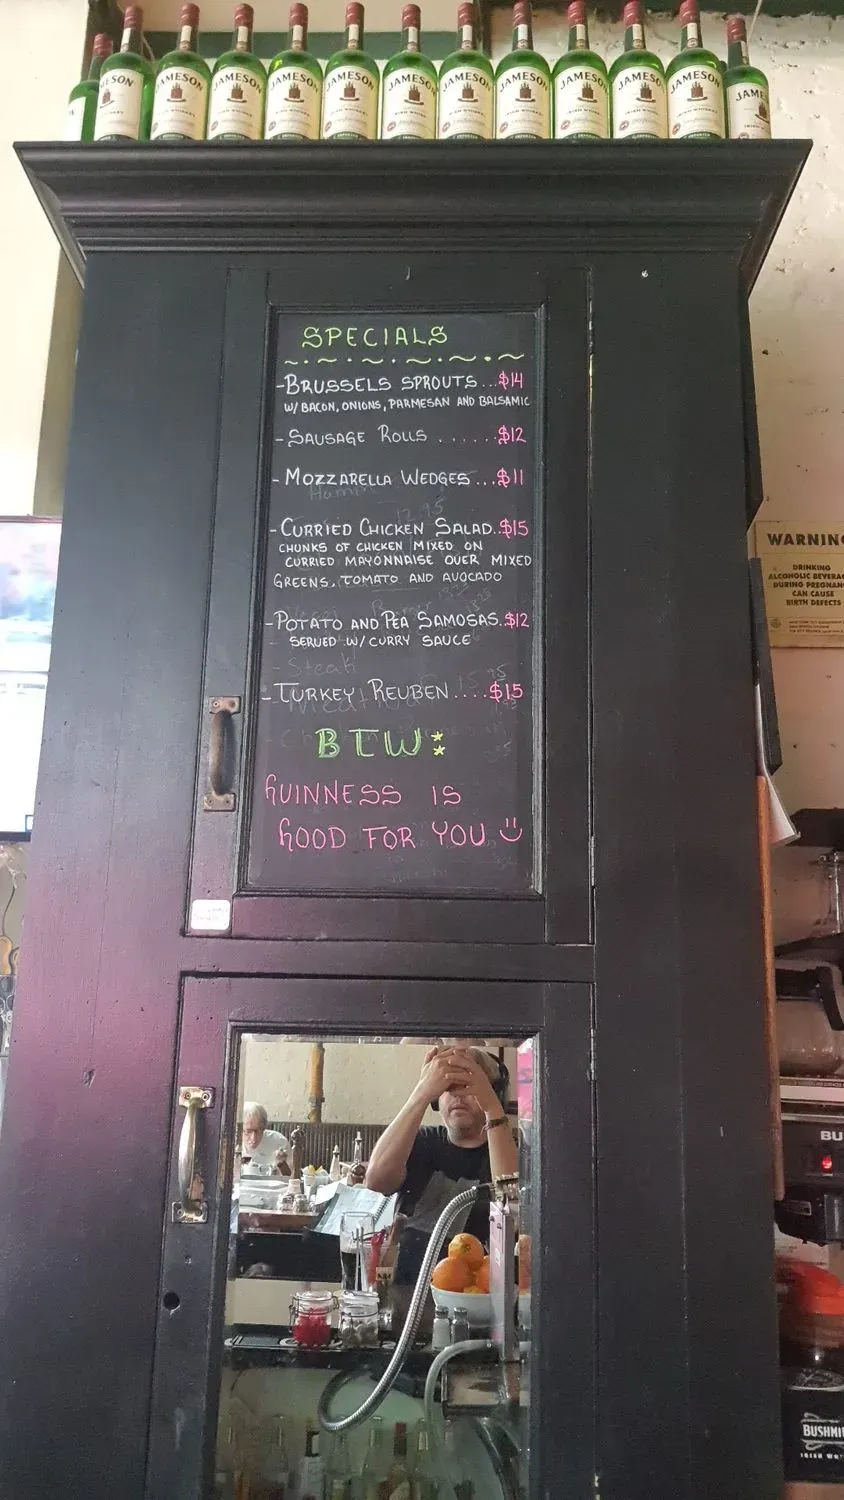 JAMESON JAMESON JAMESON JAMESON JAMESON JAMESON JAMESON JAMESON JAMESON JAMESON JAMESON
SPECIALS
-BRUSSELS SPROUTS...$14
W/ BACON, ONIONS, PARMESAN AND BALSAMIC
-SAUSAGE ROLLS ......$12
-MOZZARELLA WEDGES...$11
-CURRIED CHICKEN SALAD..$15
CHUNKS OF CHICKEN MIXED ON
CURRIED MAYONNAISE OVER MIXED
GREENS, TOMATO AND AVOCADO
-POTATO AND PEA SAMOSAS.$12
SERVED W/ CURRY SAUCE
- Steak
-TURKEY REUBEN....$15
BTW:
GUINNESS IS
GOOD FOR YOU
WARNING
DRINKING
ALCOHOLIC BEVERA
DURING PREGNAN
CAN CAUSE
BIRTH DEFECTS
BU
BUSHMI